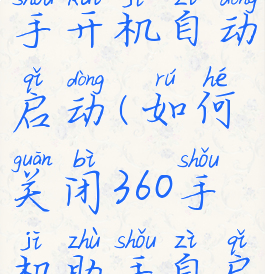 shǒu kāi jī zì dòng
手开机自动
qǐ dòng rú hé
启动(如何
guān bì shǒu
关闭360手
jī zhù shǒu zì qǐ
机助手自启